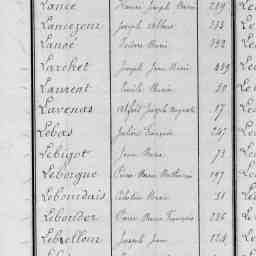 Lance Joseph Marie 289
Lancezeur Joseph 233
Lancé Isidore Marie 192
Larchet Joseph Jean Marie 459
Laurent Emile Marie 50
Lavenas Alfred Joseph Auguste 17
Lebas Julien François 247
Lebigot Jean Marie 73
Leborgne Pierre Marie Mathurin 197
Lebourdais Célestin Marie 51
Lebourder Pierre Marie François 286
Lebrellour Joseph Jean 124